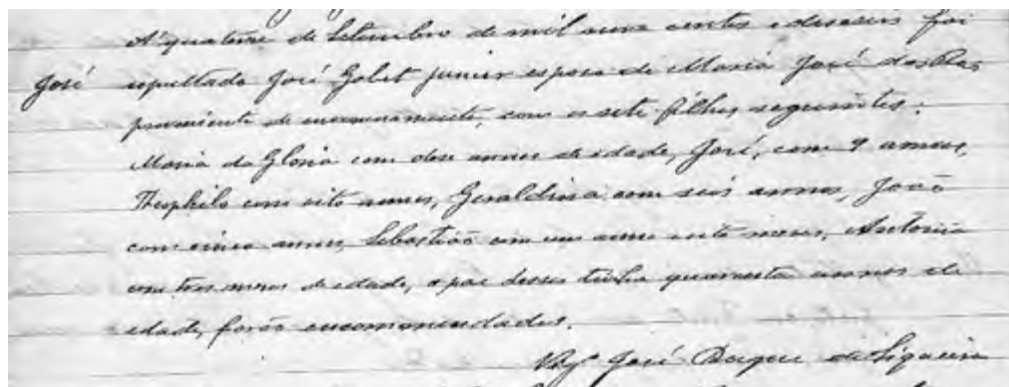 A quatorze de Setembro de mil nove centos e deseseis foi
José sepultado José Golet junior esposo de Maria José das Dores
proveniente de envenenamento, com os sete filhos seguintes:
Maria da Gloria com dose annos de edade, José, com 9 annos,
Theophilo com oito annos, Geraldina com seis annos, João
com cinco annos, Sebastião com um anno e oito meses, Antonia
com tres meses de edade, o pae desses tinha quarenta annos de
edade, forão encommendados.
Vigº José de Siqueira